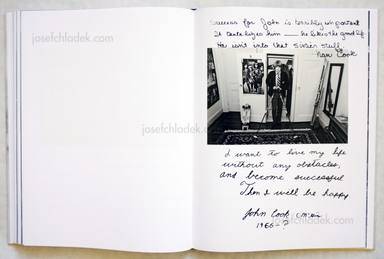 © josefchladek.com
Success for John is terribly important
It tantalizes him — he likes the good life
He isn't into that sixties stuff.
Nan Cook
© josefchladek.com
I want to live my life
without any obstacles,
and become successful
Then I will be happy
John Cook
© josefchladek.com